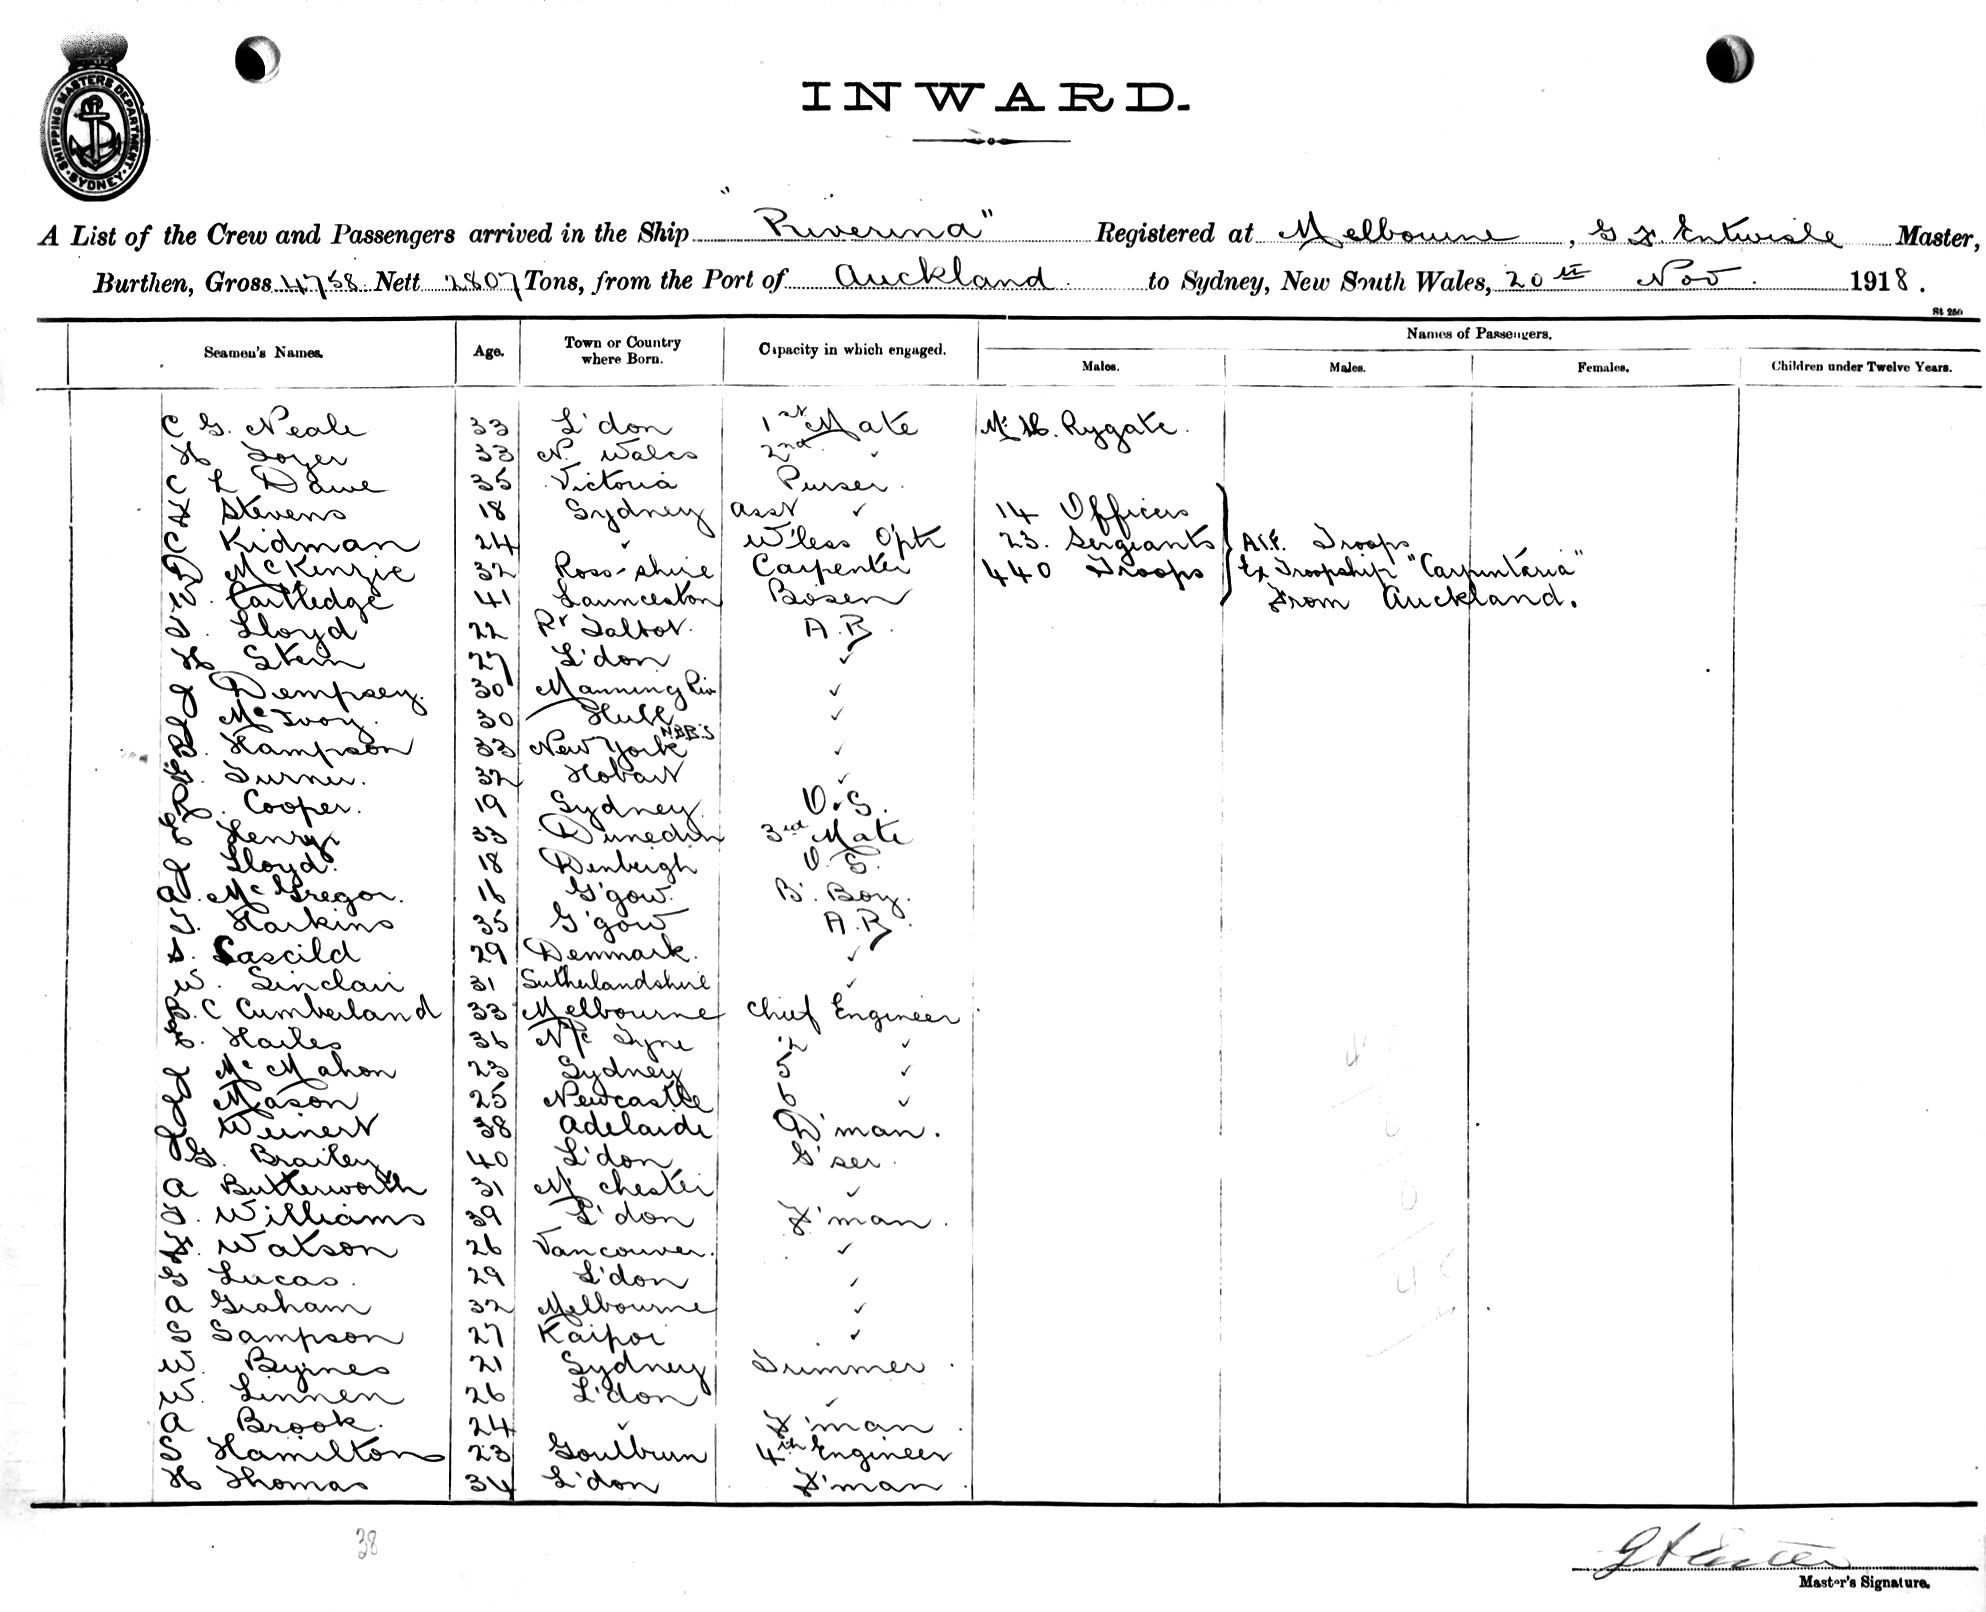 SHIPPING MASTERS DEPARTMENT
SYDNEY
INWARD.
A List of the Crew and Passengers arrived in the Ship "Riverina" Registered at Melbourne, G F. Entwisle Master,
Burthen, Gross 4758 Nett 2807 Tons, from the Port of Auckland to Sydney, New South Wales, 20th Nov. 1918.
St 250
Seamen's Names. Age. Town or Country where Born. Capacity in which engaged. Names of Passengers.
Males. Males. Females. Children under Twelve Years.
C G. Neale 33 L'don 1st Mate Mr Rygate.
H 33 N. Wales 2nd ✓
C L Dawe 35 Victoria Purser.
H Stevens 18 Sydney Asst ✓ 14 Officers
C Kidman 24 ✓ W'less Optr 23. Sergeants A.I.F. Troops
McKenzie 32 Ross-shire Carpenter 440 Troops Ex Troopship "Carpuntaria"
W. Cartledge 41 Launceston Bosen From Auckland.
Lloyd 22 Pt Talbot. A.B.
H Stern 27 L'don ✓
J Dempsey. 30 Manning Riv ✓
J McIvory. 30 Hull ✓
Hampson 33 New York N.B.B.S ✓
Turner. 32 Hobart ✓
Cooper. 19 Sydney. O.S.
Henry 33 Dunedin 3rd Mate
J Lloyd. 18 Denbeigh O.S.
A. McGregor. 16 G'gow. B. Boy.
Harkins 35 G'gow A.B.
S. Cascild 29 Denmark. ✓
W. Sinclair 31 Sutherlandshire ✓
C Cumberland 33 Melbourne Chief Engineer
Hailes 36 Nc Tyne 2 ✓
J McMahon 23 Sydney 5 ✓
J Mason 25 Newcastle 6 ✓
J Weinert 38 Adelaide D'man.
G. Brailey 40 L'don G'ser.
A Butterworth 31 M'chester ✓
T. Williams 39 L'don F'man.
F. Watson 26 Vancouver. ✓
G Lucas. 29 L'don ✓
A Graham 32 Melbourne ✓
S Sampson 27 Kaipoi ✓
W. Byrnes 21 Sydney Trimmer.
W. Linnen 26 L'don ✓
A Brook. 24 ✓ F'man
S Hamilton 23 Goulburn 4th Engineer
H Thomas 34 L'don F'man.
38
Master's Signature.